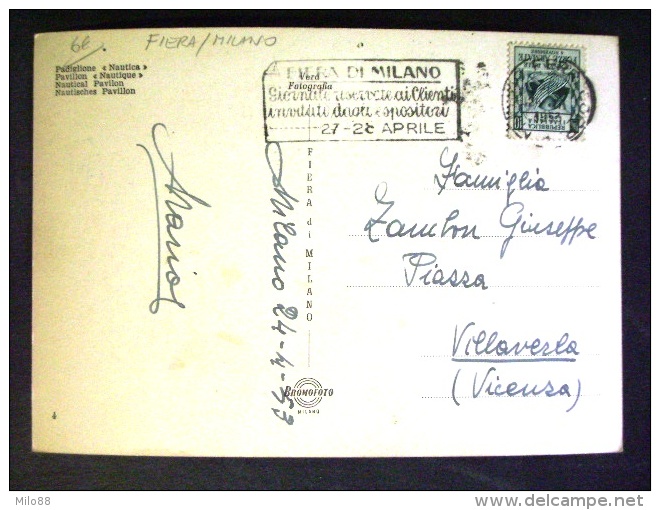 6€ FIERA/MILANO
Padiglione « Nautica »
Pavillon « Nautique »
Nautical Pavilon
Nautisches Pavillon
FIERA DI MILANO
Vera
Fotografia
Giornate riservate ai Clienti
invitati dagli espositori
27-28 APRILE
REPUBBLICA
FIERA di MILANO
Milano 24-4-53
Mario
Famiglia
Zambon Giuseppe
Piazza
Villaverla
(Vicenza)
BROMOFOTO
MILANO
4
Milo88
delcampe.net